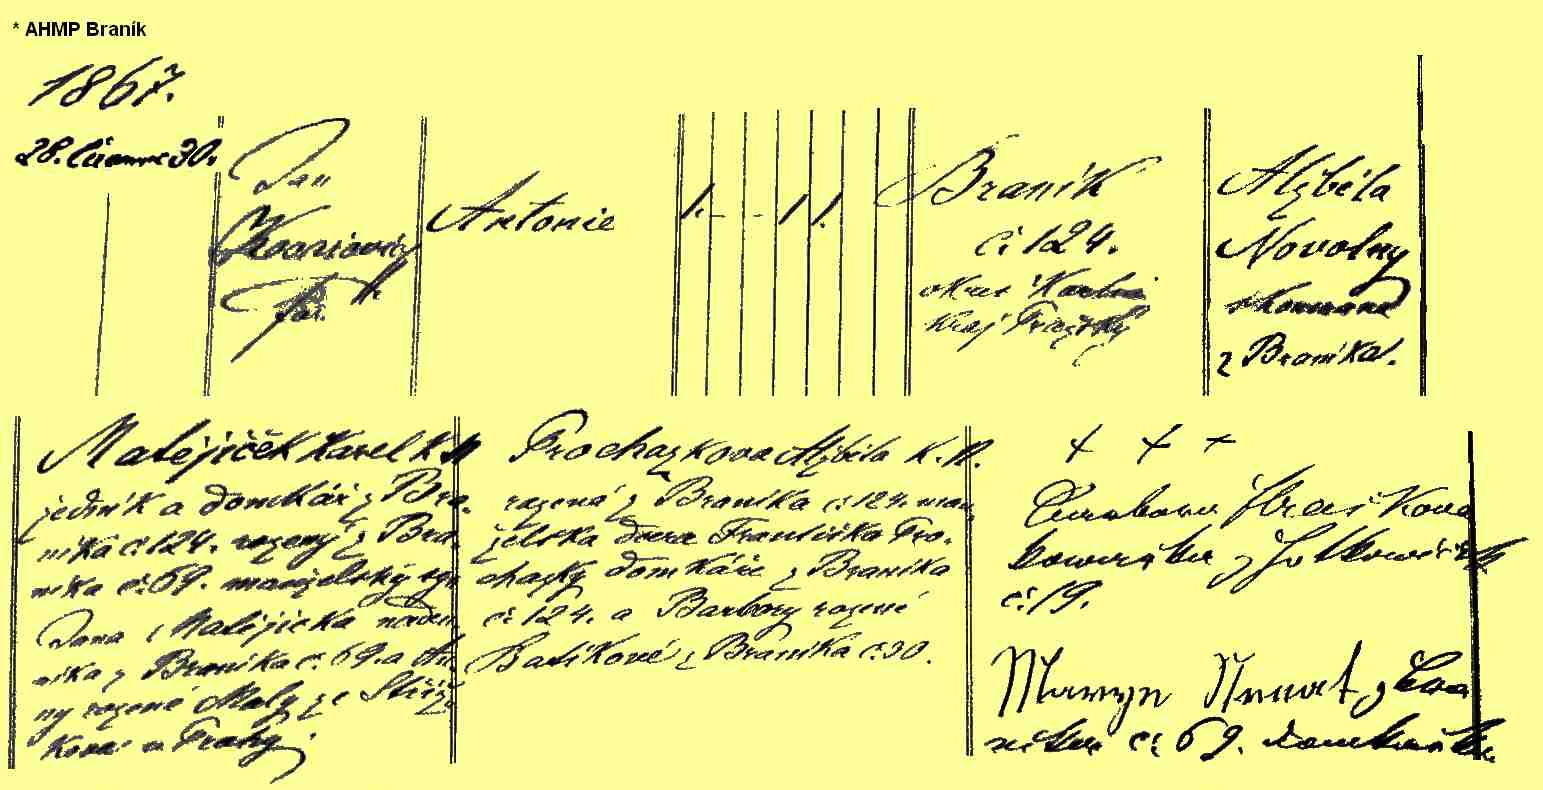 * AHMP Braník
1867.
28. 30.
Jan
Antonie
1. - - 1 1.
Braník
či 124.
okres Karlín
Kraj Pražský
Alžběta
Novotny
z Braníka.
Matějiček Karel K. N
jedník a domkář z Bra-
níka či 124. rozený z Bra-
níka či 69. manželský syn
Jana Matějicka nádení-
níka z Braníka č. 69. a An-
ny rozené Maly ze Stříž-
kova u Prahy.
Prochazkova Alžběta K. N.
rozená z Braníka či 124. man-
želska dcera Františka Pro-
chazky domkáře z Braníka
či 124. a Barbory rozené
z Braníka č. 30.
+ + +
či 19.
z Bra
níka či 69.